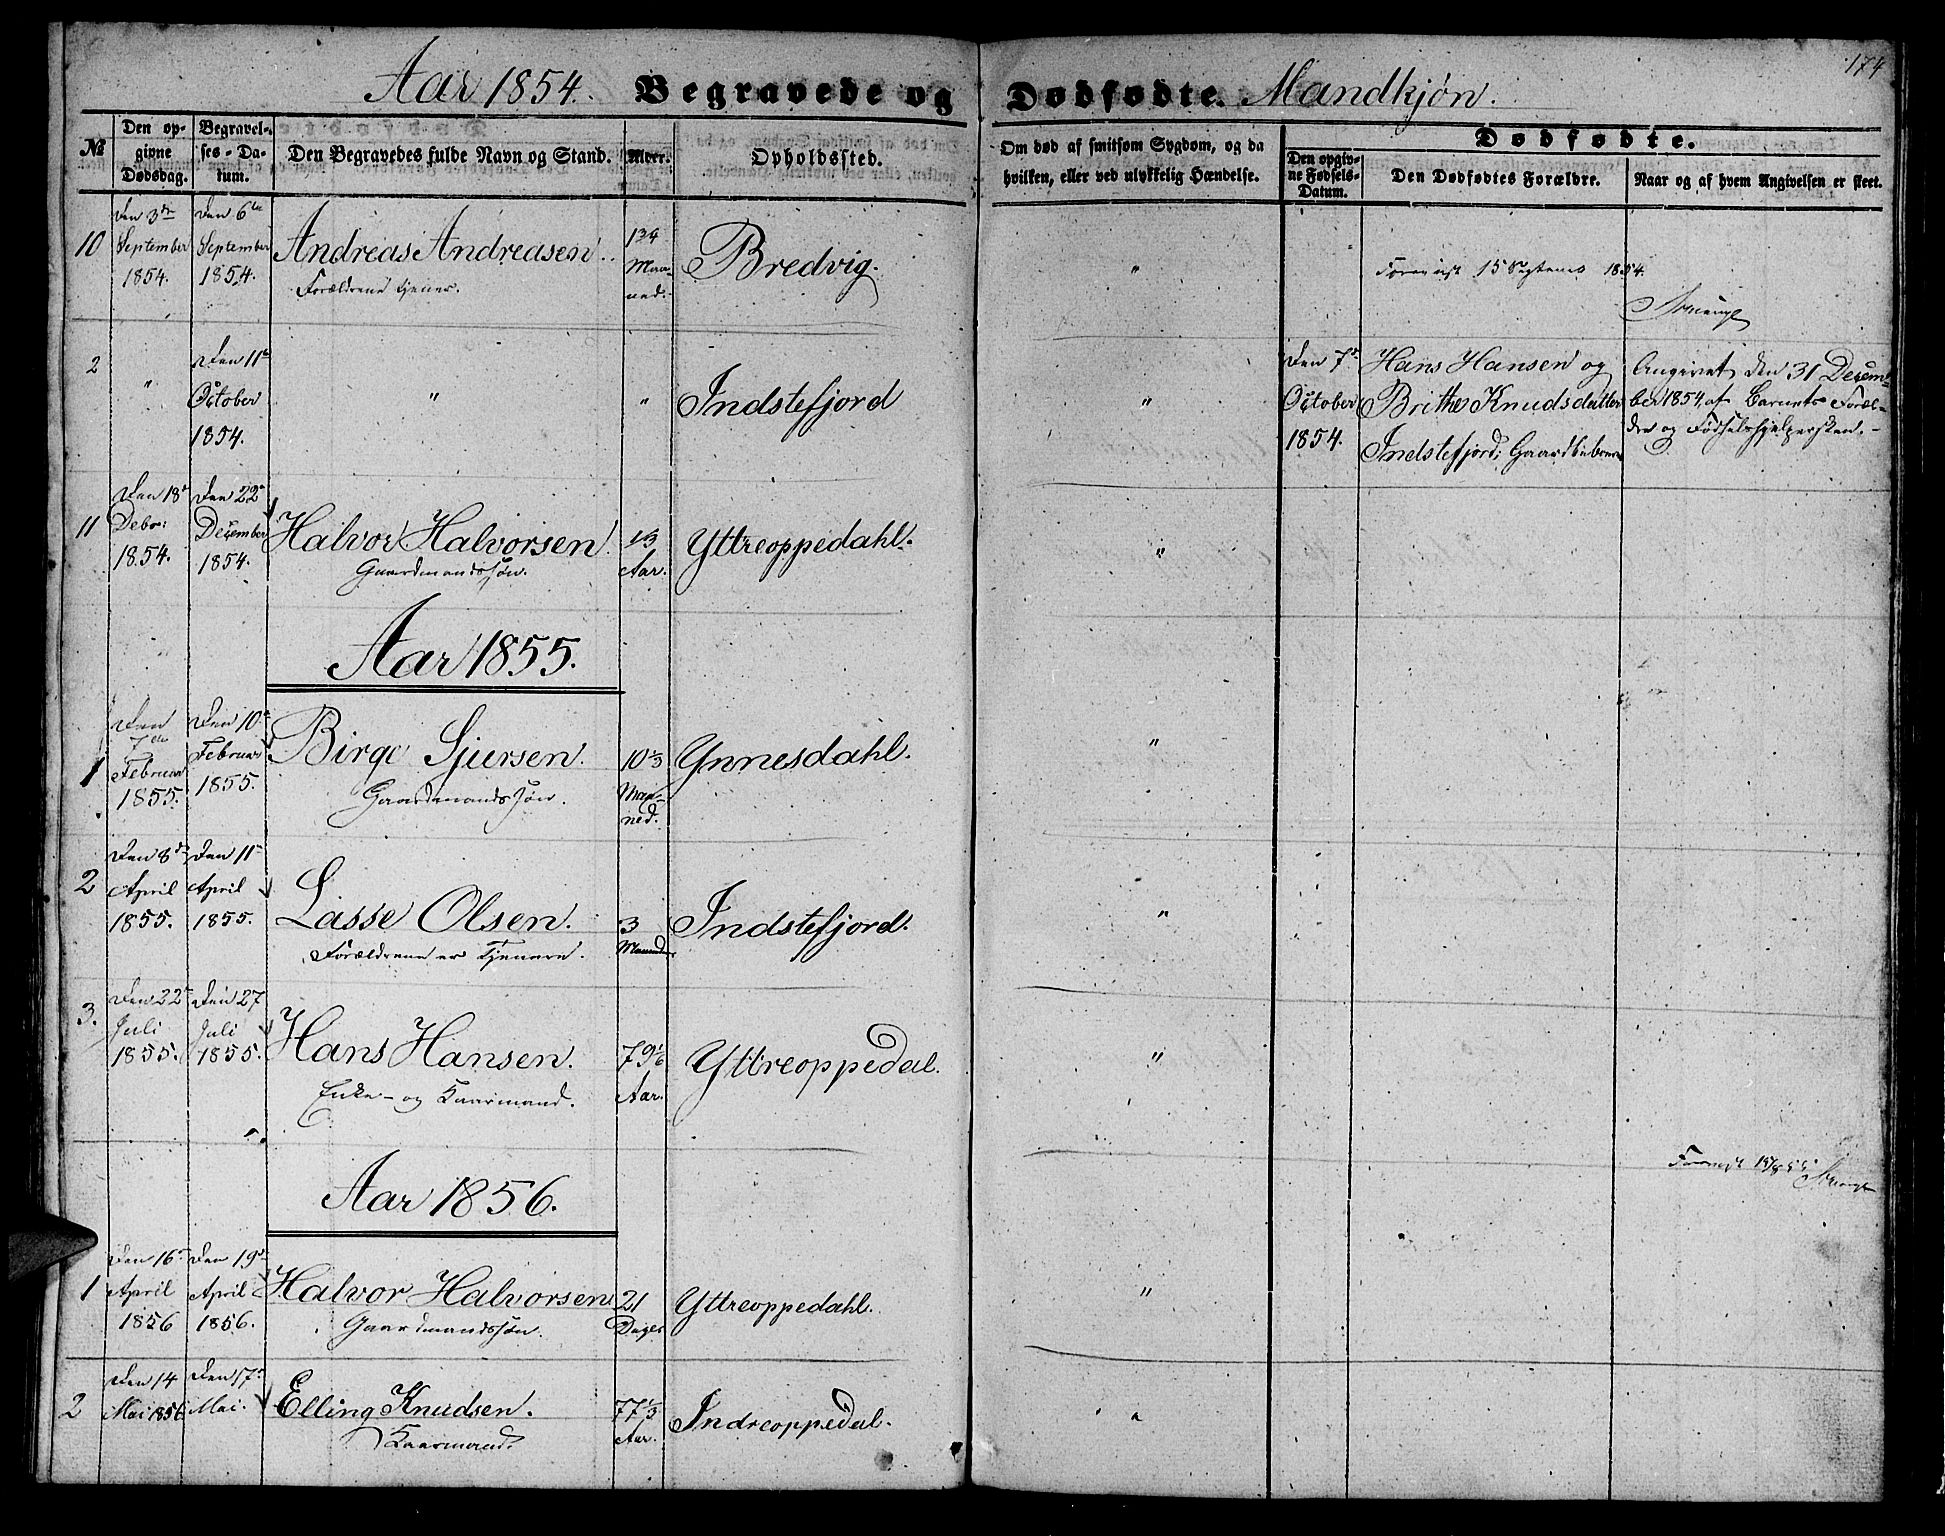 174
Aar 1854. Begravede og Dødfødte. Mandkjøn.
No
Den op-
givne
Dødsdag.
Begravel-
ses-Da-
tum.
Den Begravedes fulde Navn og Stand.
Alder.
Opholdssted.
Om død af smitsom Sygdom, og da
hvilken, eller ved ulykkelig Hændelse.
Dødfødte.
Den opgiv-
ne Fødsels-
Datum.
Den Dødfødtes Forældre.
Naar og af hvem Angivelsen er skeet.
10
Den 3die
September
1854.
Den 6te
September
1854.
Andreas Andreasen.
Forældrene tjener.
Maa-
ned.
Bredvig.
"
15 Septembr 1854.
2
"
Den 11te
October
1854.
"
"
Indstefjord
"
Den 7de
October
1854.
Hans Hansen og
Brithe Knudsdatter
Indstefjord; Gaardbeboere
Angivet den 31 Decem-
ber 1854, af Barnets Foræl-
dre og Fødselshjelpersken.
11
Den 18de
Debr:
1854.
Den 22de
December
1854.
Halvor Halvorsen.
Gaardmandssøn.
Aar.
Yttreoppedahl.
"
Aar 1855.
1
Den
7de
Februar
1855.
Den 10de
Februar
1855.
Birge Sjursen.
Gaardmandssøn.
Maa-
ned.
Ynnesdahl.
"
2
Den 8de
April
1855.
Den 11te
April
1855.
Lasse Olsen.
Forældrene er Tjenere.
3
Maaneder
Indstefjord.
"
3.
Den 22de
Juli
1855.
Den 27
Juli
1855.
Hans Hansen.
Enke- og Kaarmand.
79 1/6
Aar.
Yttreoppedal.
"
Aar 1856.
1
Den 16de
April
1856
Den 19de
April
1856.
Halvor Halvorsen
Gaardmandssøn.
21
Dager
Yttreoppedahl.
"
2
Den 14
Mai 1856
Den 17de
Mai.
Elling Knudsen.
Kaarmand.
77 1/3
Aar.
Indreoppedal.
"